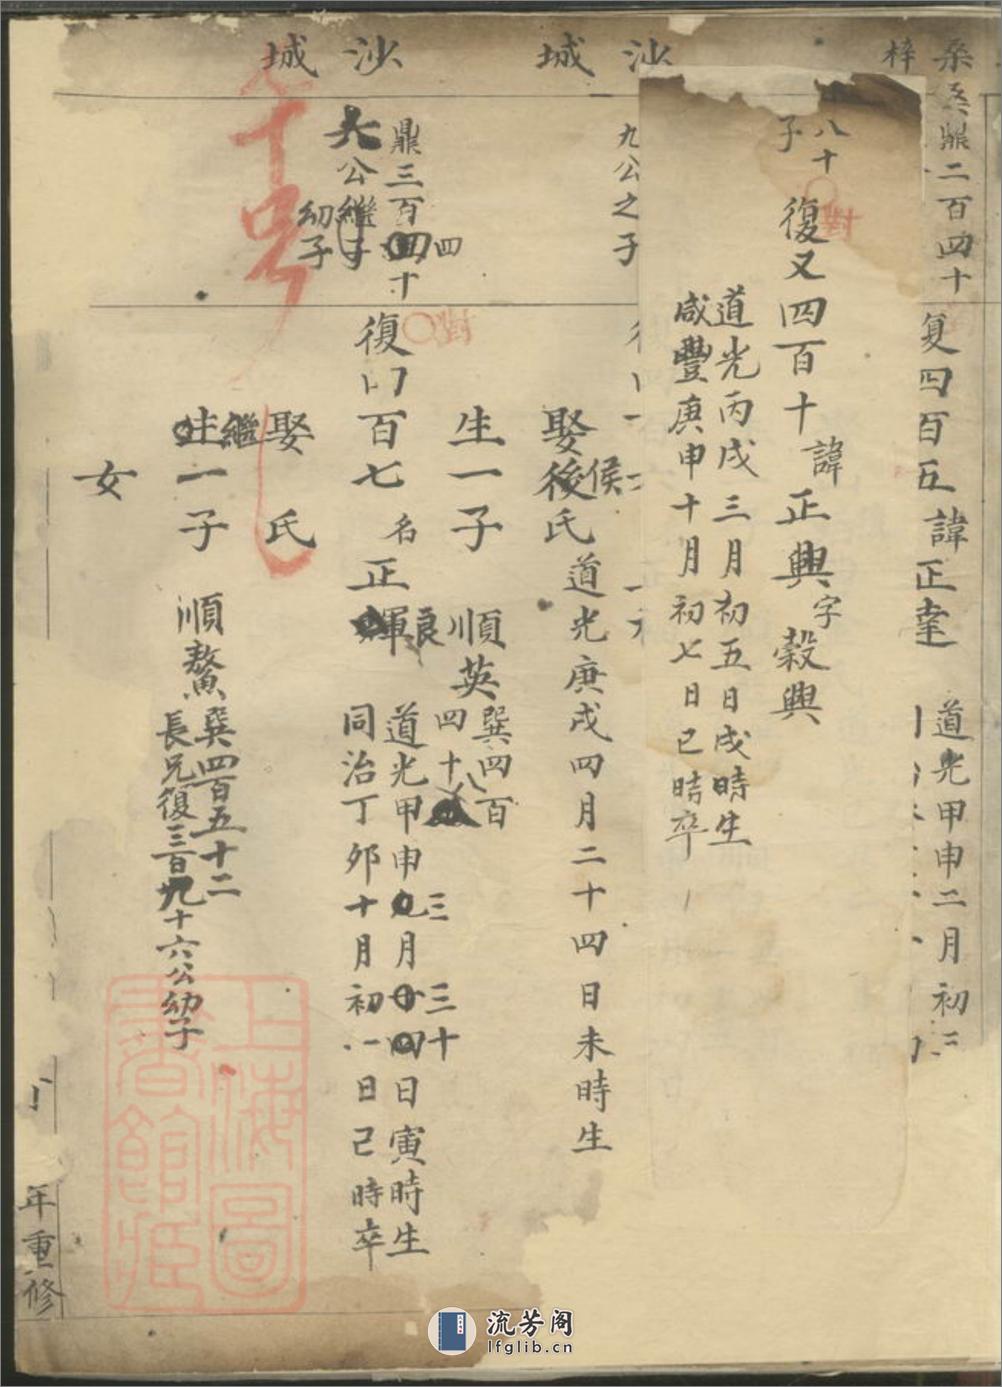 桑梓
鼎二百四十
復四百五諱正達
道光甲申二月初三
八十
子
對
復又四百十諱正興字穀興
道光丙戌三月初五日戌時生
咸豐庚申十月初七日巳時卒
沙城
九公之子
娶侯氏
道光庚戌四月二十四日未時生
生一子
順英
巽四百
四十八
沙城
鼎三百四十四
六公繼子
幼子
對
復四百七名正良
道光甲申三月三十日寅時生
同治丁卯十月初一日己時卒
娶氏
繼一子
順鰲
巽四百五十二
長兄復三百九十六公幼子
女
年重修
上海圖書館藏
流芳阁
lfglib.cn